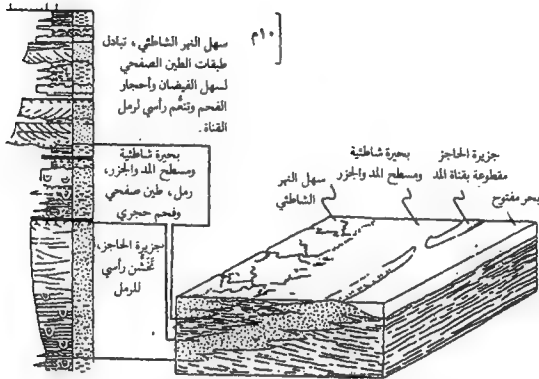 ١٠م
سهل النهر الشاطئي، تبادل
طبقات الطين الصفحي
لسهل الفيضان وأحجار
الفحم وتنعُّم رأسي لرمل
القناة.
بحيرة شاطئية
ومسطح المد والجزر،
رمل، طين صفحي
وفحم حجري
جزيرة الحاجز،
تَخَشُّن رأسي
للرمل
سهل النهر
الشاطئي
بحيرة شاطئية
ومسطح المد والجزر
جزيرة الحاجز
مقطوعة بقناة المد
بحر مفتوح